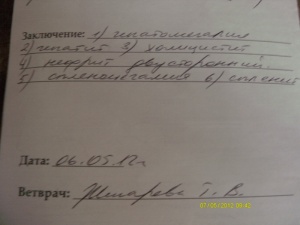 Заключение: 1) гепатомегалия
2) гепатит 3) холицистит
4) нефрит двусторонний.
5) спленомегалия 6) спленит
Дата: 06.05.12г.
Ветврач: Т. В.
01/05/2012 09:42